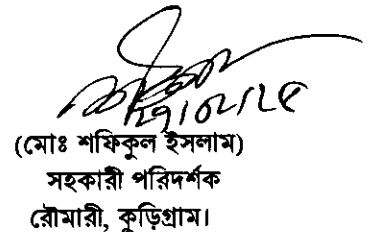 (মোঃ শফিকুল ইসলাম)
সহকারী পরিদর্শক
রৌমারী, কুড়িগ্রাম।